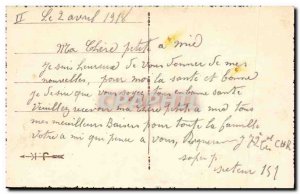 II Le 2 avril 191
Ma Chère petite a mie
je suis heureux de vous donner de mes
nouvelles, pour moi la santé et bonne
je desir que vous soyez tous en bonne santé
Veuillez recevoir ma chère
mes meilleurs Baisers pour toute la famille
votre a mi qui pence a vous,
secteur 151
J.K